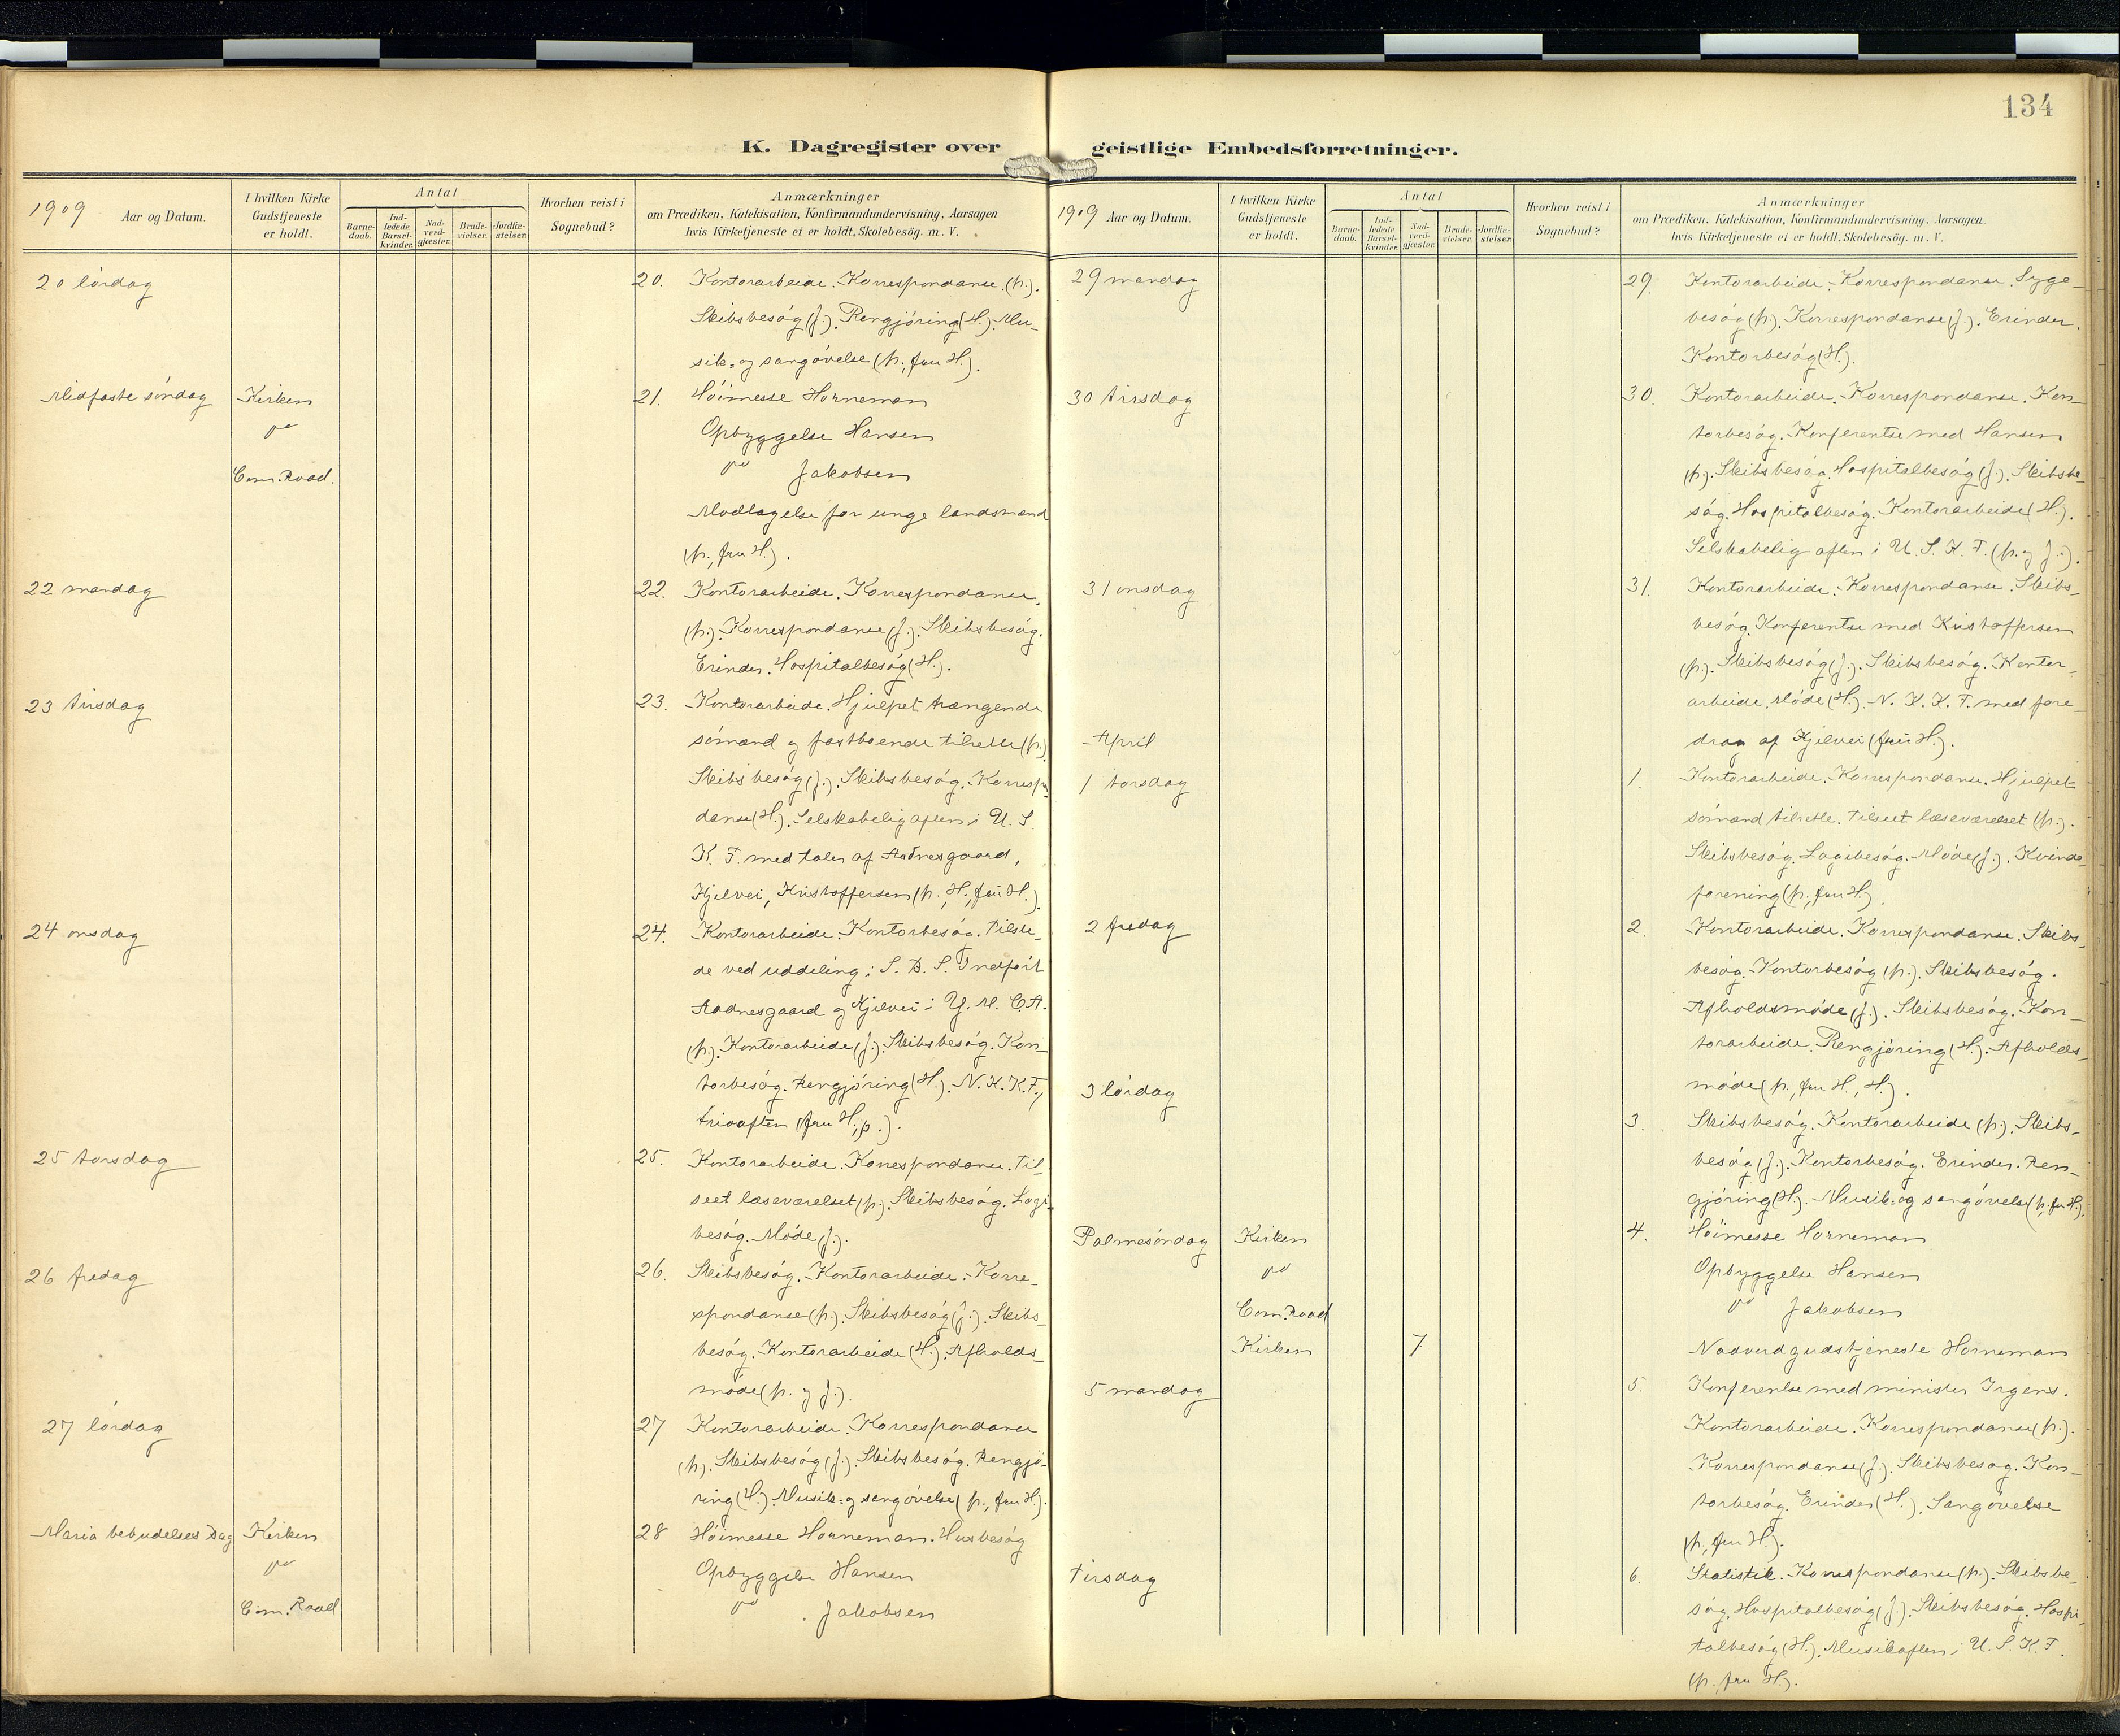 134
K. Dagregister over geistlige Embedsforretninger.
1909 Aar og Datum.
I hvilken Kirke Gudstjeneste er holdt.
Antal
Barne-daab.
Ind-ledede Barsel-kvinder.
Nad-verd-gjæster.
Brude-vielser.
Jordfæ-stelser.
Hvorhen reist i Sognebud?
Anmærkninger
om Prædiken, Katekisation, Konfirmandundervisning, Aarsagen
hvis Kirketjeneste ei er holdt, Skolebesög. m. V.
20 lördag 20. Kontorarbeide. Korrespondanse. (p.).
Skibsbesög (J.). Rengjöring (H.). Mu-
sik- og sangövelse (p., fru H.).
Midfaste söndag Kirken 21. Höimesse Horneman
do Opbyggelse Hansen
Com. Road. do Jakobsen
Modtagelse for unge landsmænd
(p., fru H.).
22 mandag 22. Kontorarbeide. Korrespondanse.
(p.). Korrespondanse (J.). Skibsbesög.
Erinder. Hospitalbesög (H.).
23 tirsdag 23. Kontorarbeide. Hjulpet trængende
sömænd og fastboende tilrette (p.)
Skibsbesög (J.). Skibsbesög. Korrespon
danse (H.). Selskabelig aften i U. S.
K. F. med taler af Aadnesgaard,
Hjelvei, Kristoffersen (p., H., fru H.).
24 onsdag 24. Kontorarbeide. Kontorbesög. Tilste-
de ved uddeling i S. B. S. Indfört
Aadnesgaard og Hjelvei i Y. M. C. A.
(p.). Kontorarbeide (J.). Skibsbesög. Kon-
torbesög. Rengjöring (H.). N. K. K. F.,
trioaften (fru H., p.).
25 torsdag 25. Kontorarbeide. Korrespondanse. Til-
seet læseværelset (p.). Skibsbesög. Logi-
besög. Möde (J.).
26 fredag 26. Skibsbesög. Kontorarbeide. Korre-
spondanse (p.). Skibsbesög (J.). Skibs-
besög. Kontorarbeide (H.). Afholds-
möde (p. og J.).
27 lördag 27 Kontorarbeide. Korrespondanse
(p.). Skibsbesög (J.). Skibsbesög. Rengjö-
ring (H.). Musik- og sangövelse (p., fru H.).
Maria bebudelses Dag Kirken 28 Höimesse Horneman. Husbesög
do Opbyggelse Hansen
Com. Road do Jakobsen
1909 Aar og Datum.
I hvilken Kirke Gudstjeneste er holdt.
Antal
Barne-daab.
Ind-ledede Barsel-kvinder.
Nad-verd-gjæster.
Brude-vielser.
Jordfæ-stelser.
Hvorhen reist i Sognebud?
Anmærkninger
om Prædiken, Katekisation, Konfirmandundervisning, Aarsagen
hvis Kirketjeneste ei er holdt, Skolebesög. m. V.
29 mandag 29. Kontorarbeide. Korrespondanse. Syge-
besög (p.). Korrespondanse (J.). Erinder.
Kontorbesög (H.).
30 tirsdag 30. Kontorarbeide. Korrespondanse. Kon-
torbesög. Konferentse med Hansen
(p.). Skibsbesög. Hospitalbesög (J.). Skibsbe-
sög. Hospitalbesög. Kontorarbeide (H.).
Selskabelig aften i U. S. K. F. (p. og J.).
31 onsdag 31. Kontorarbeide. Korrespondanse. Skibs-
besög. Konferentse med Kristoffersen
(p.). Skibsbesög (J.). Skibsbesög. Kontor-
arbeide. Möde (H.). N. K. K. F. med fore-
drag af Hjelvei (fru H.).
April
1 torsdag 1. Kontorarbeide. Korrespondanse. Hjulpet
sömænd tilrette. Tilseet læseværelset (p.).
Skibsbesög. Logibesög. Möde (J.). Kvinde-
forening (p., fru H.).
2 fredag 2. Kontorarbeide. Korrespondanse. Skibs-
besög. Kontorbesög (p.). Skibsbesög.
Afholdsmöde (J.). Skibsbesög. Kon-
torarbeide. Rengjöring (H.). Afholds-
möde (p., fru H., H.).
3 lördag 3. Skibsbesög. Kontorarbeide (p.). Skibs-
besög (J.). Kontorbesög. Erinder. Ren-
gjöring (H.). Musik- og sangövelse (p., fru H.).
Palmesöndag Kirken 4. Höimesse Horneman
do Opbyggelse Hansen
Com. Road do Jakobsen
Kirken 7 Nadverdgudstjeneste Horneman
5 mandag 5. Konferentse med minister Irgens.
Kontorarbeide. Korrespondanse (p.).
Korrespondanse (J.). Skibsbesög. Kon-
torbesög. Erinder (H.). Sangövelse
(p., fru H.).
tirsdag 6. Statistik. Korrespondanse (p.). Skibsbe-
sög. Hospitalbesög (J.). Skibsbesög. Hospi-
talbesög (H.). Musikaften i U. S. K. F.
(p., fru H.).